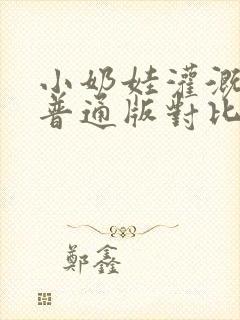 小奶娃灌溉
普通版對比
鄭鑫